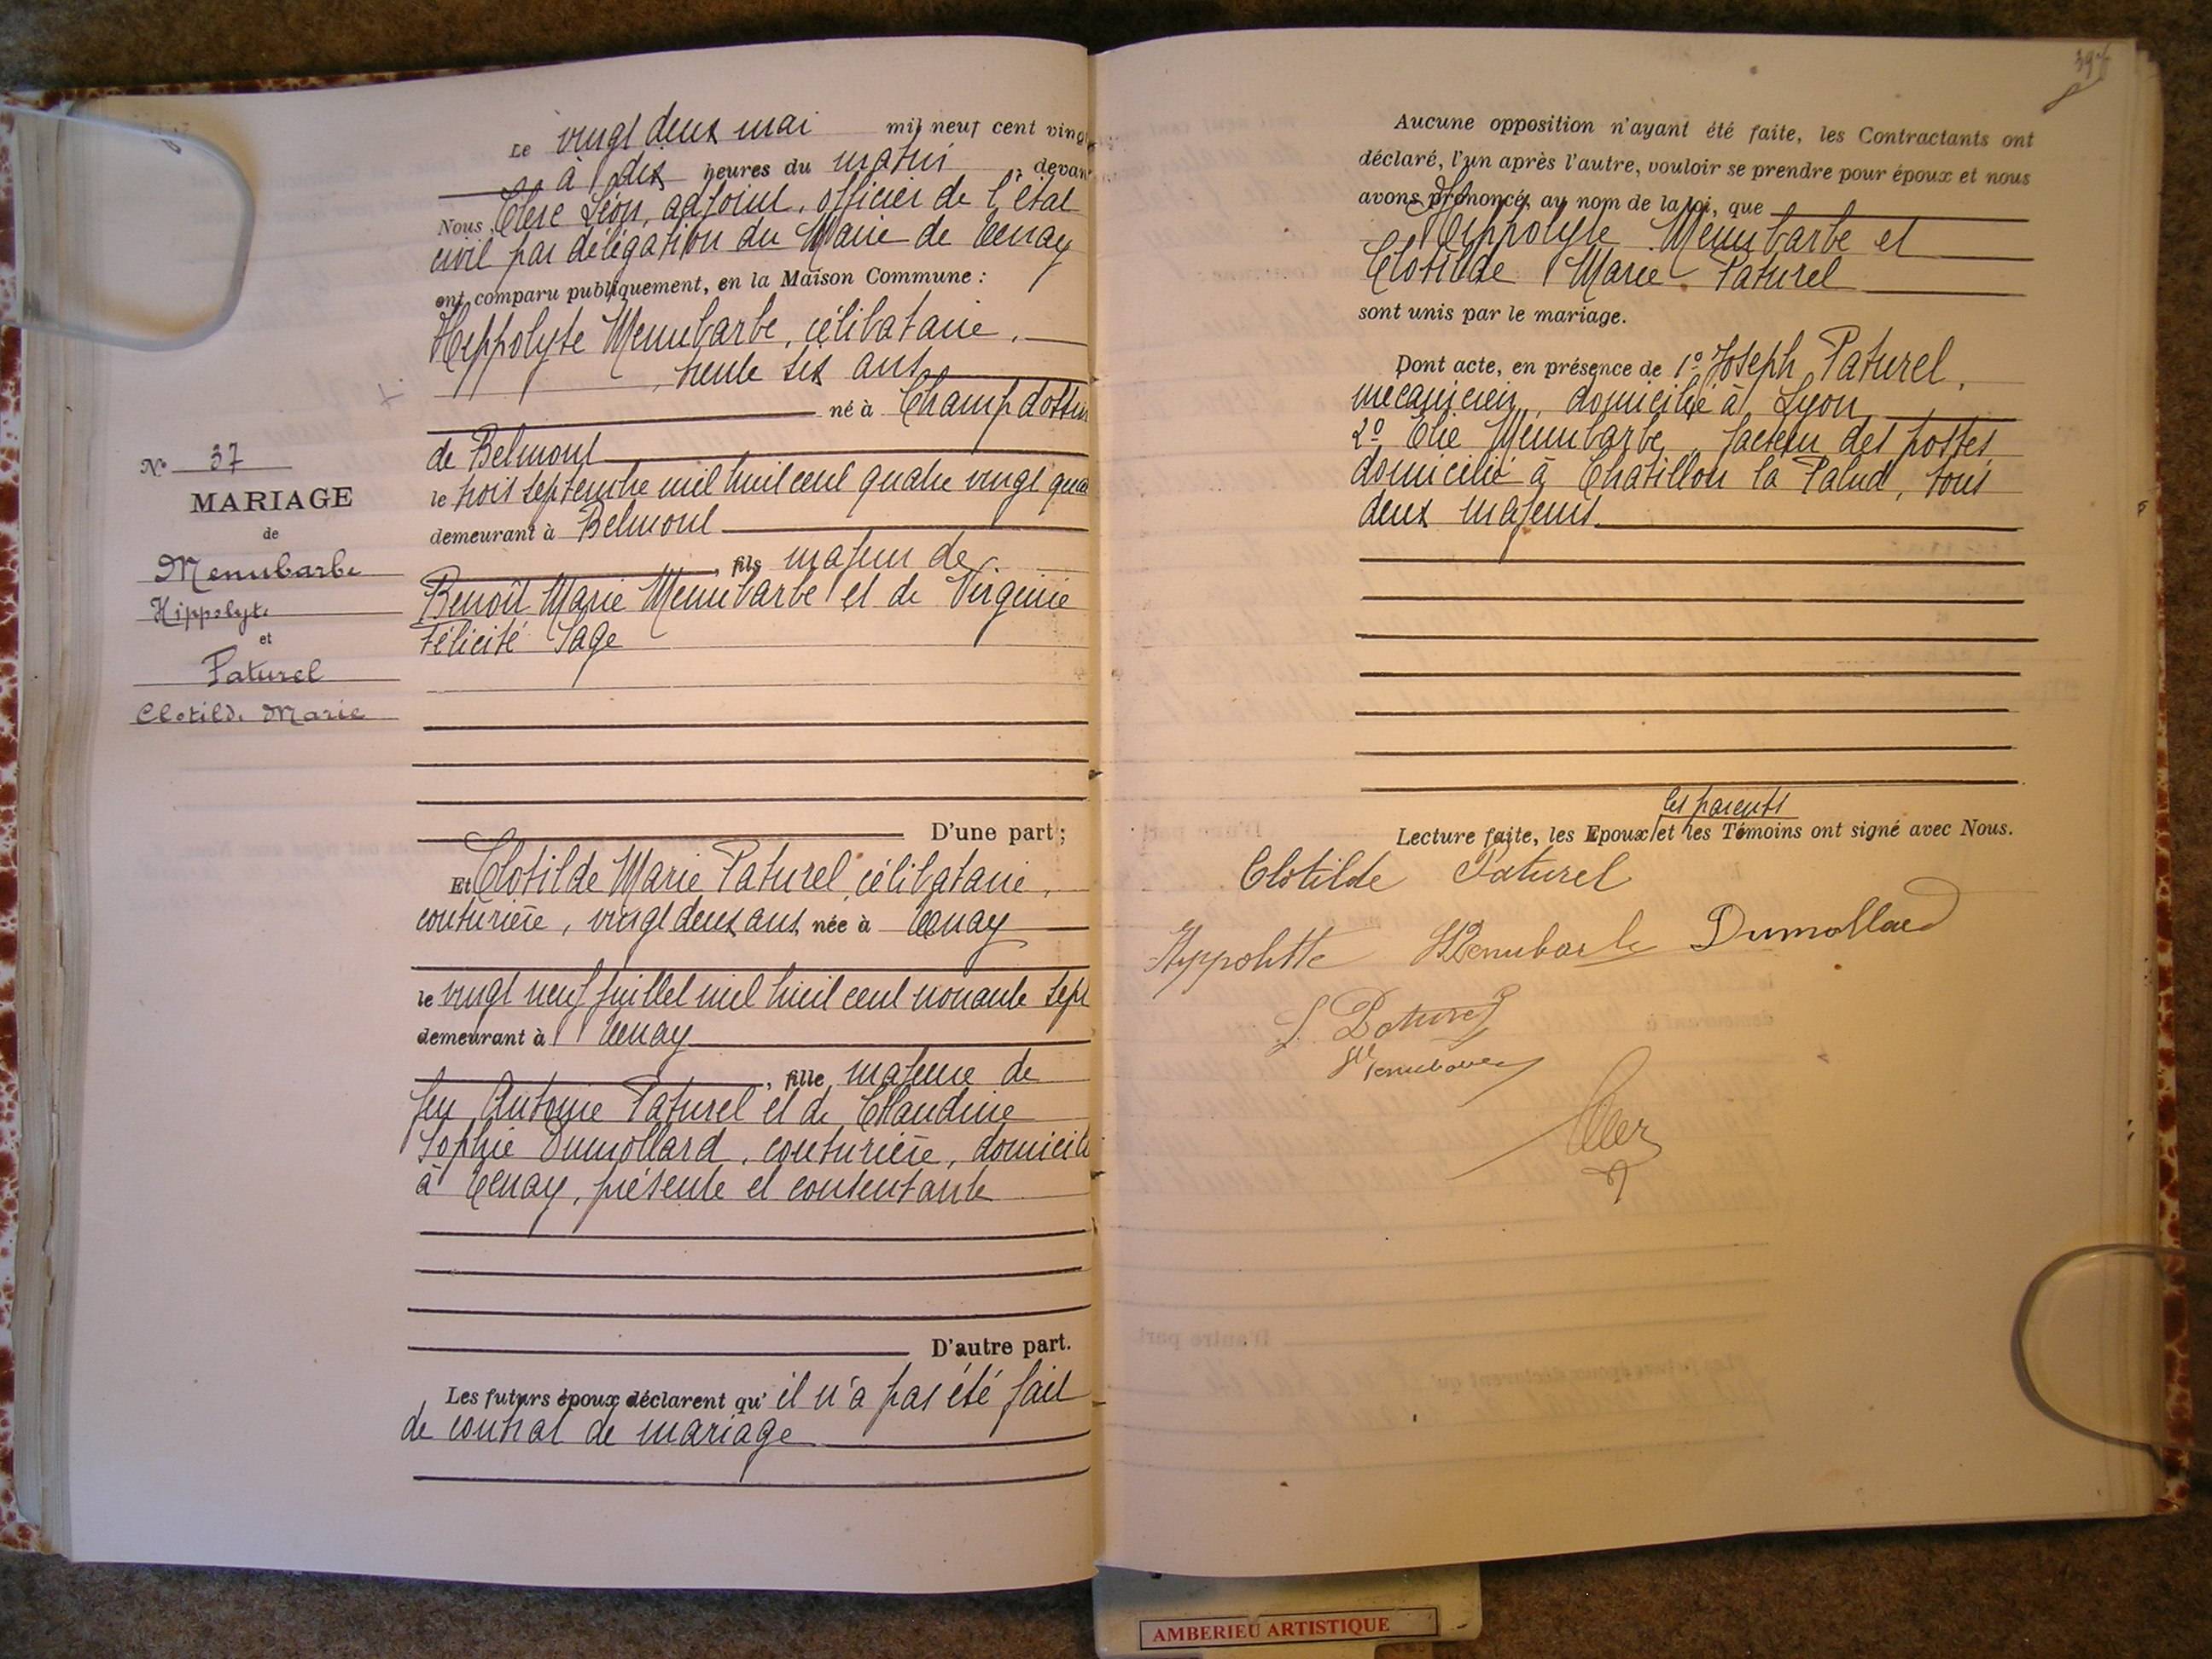 Le vingt deux mai mil neuf cent vingt
à dix heures du matin, devant
Nous Clerc Léon, adjoint, officier de l'état
civil par délégation du Maire de Tenay
ont comparu publiquement, en la Maison Commune :
Hippolyte Menubarbe, célibataire,
trente six ans
né à Champdossin
de Belmont
le trois septembre mil huit cent quatre vingt qua
demeurant à Belmont
, fils majeur de
Benoît Marie Menubarbe et de Virginie
Félicité Sage
D'une part ;
Et Clotilde Marie Paturel, célibataire,
couturière, vingt deux ans, née à Tenay
le vingt neuf juillet mil huit cent nonante sept
demeurant à Tenay
, fille majeure de
feu Antoine Paturel et de Claudine
Sophie Dumollard, couturière, domicili
à Tenay, présente et consentante
D'autre part.
Les futurs époux déclarent qu'il n'a pas été fait
de contrat de mariage
N° 37
MARIAGE
de
Menubarbe
Hippolyte
et
Paturel
Clotilde Marie
Aucune opposition n'ayant été faite, les Contractants ont
déclaré, l'un après l'autre, vouloir se prendre pour époux et nous
avons prononcé, au nom de la loi, que
Hippolyte Menubarbe et
Clotilde Marie Paturel
sont unis par le mariage.
Dont acte, en présence de 1° Joseph Paturel,
mécanicien, domicilié à Lyon
2° Elie Menubarbe, facteur des postes
domicilié à Chatillon la Palud, tous
deux majeurs
les parents
Lecture faite, les Epoux et les Témoins ont signé avec Nous.
Clotilde Paturel
Hyppolitte Menubarbe Dumollard
J. Paturel
Menubarbe
Clerc
AMBERIEU ARTISTIQUE